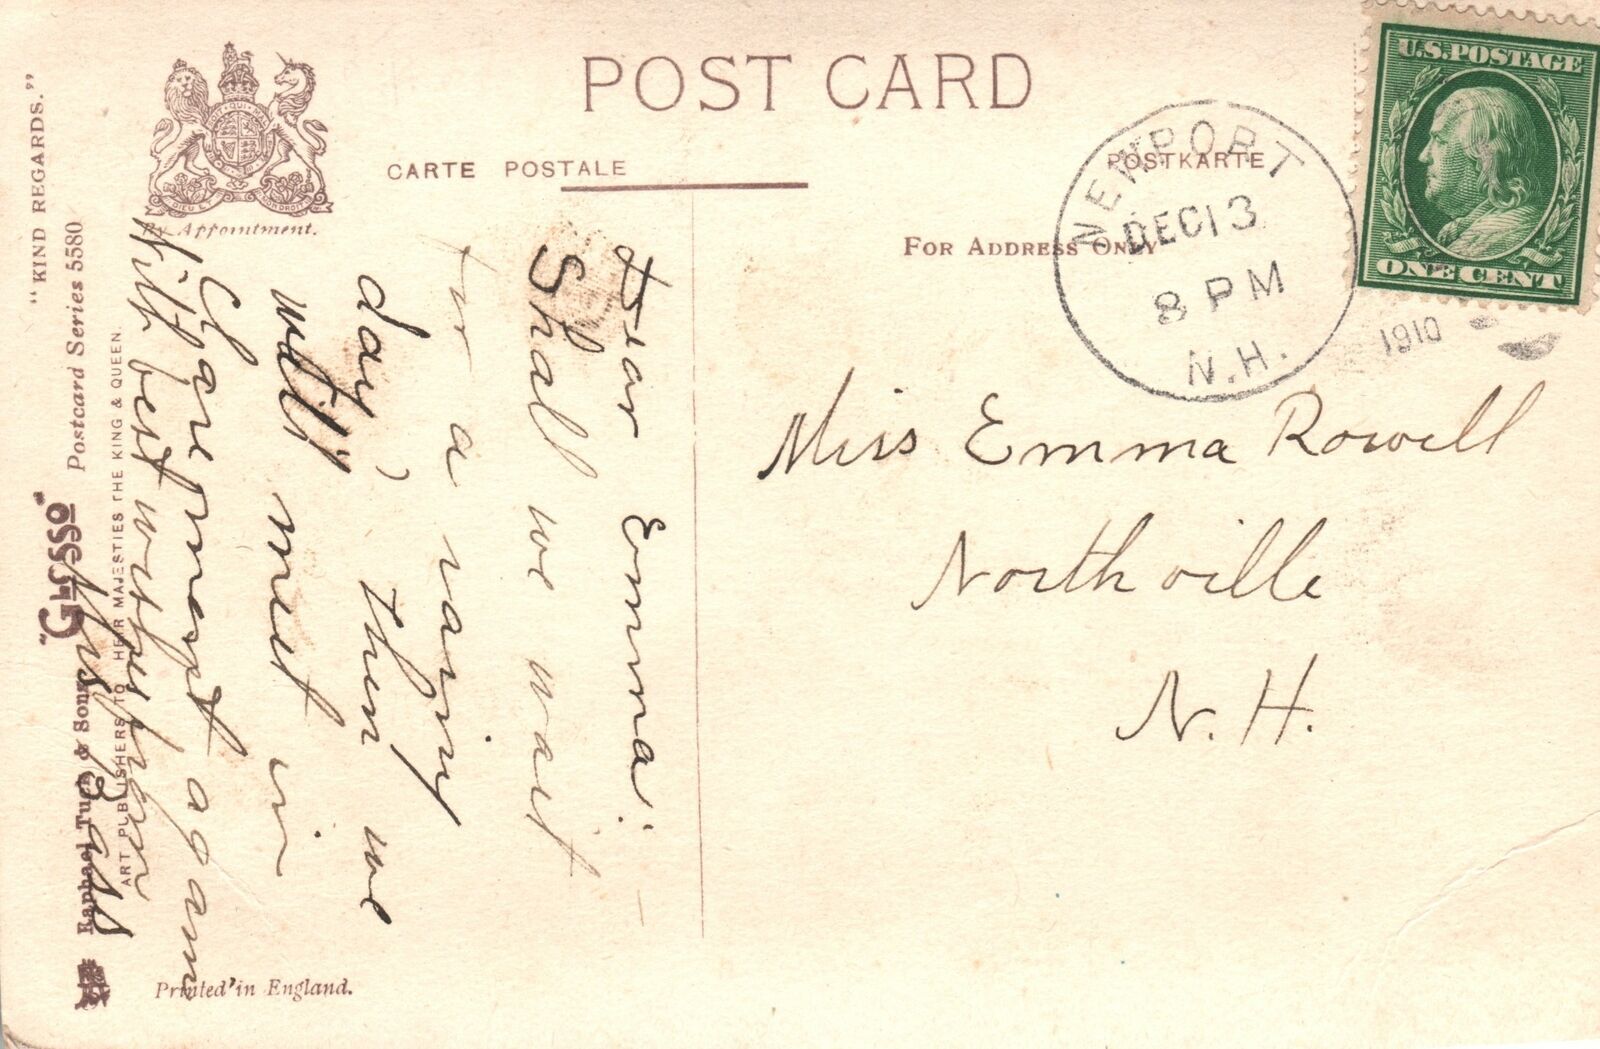 POST CARD
CARTE POSTALE
POSTKARTE
FOR ADDRESS ONLY
By Appointment.
"KIND REGARDS."
Postcard Series 5580
"GLOSSO"
Raphael Tuck & Sons
ART PUBLISHERS TO THEIR MAJESTIES THE KING & QUEEN.
Printed in England.
U.S. POSTAGE
ONE CENT
NEWPORT
DEC 13
8 PM
N.H.
1910
Miss Emma Rowell
Northville
N. H.
Dear Emma:
Shall we wait
for a rainy
day, then we
will meet in
Claremont again
With best wishes from
Bass